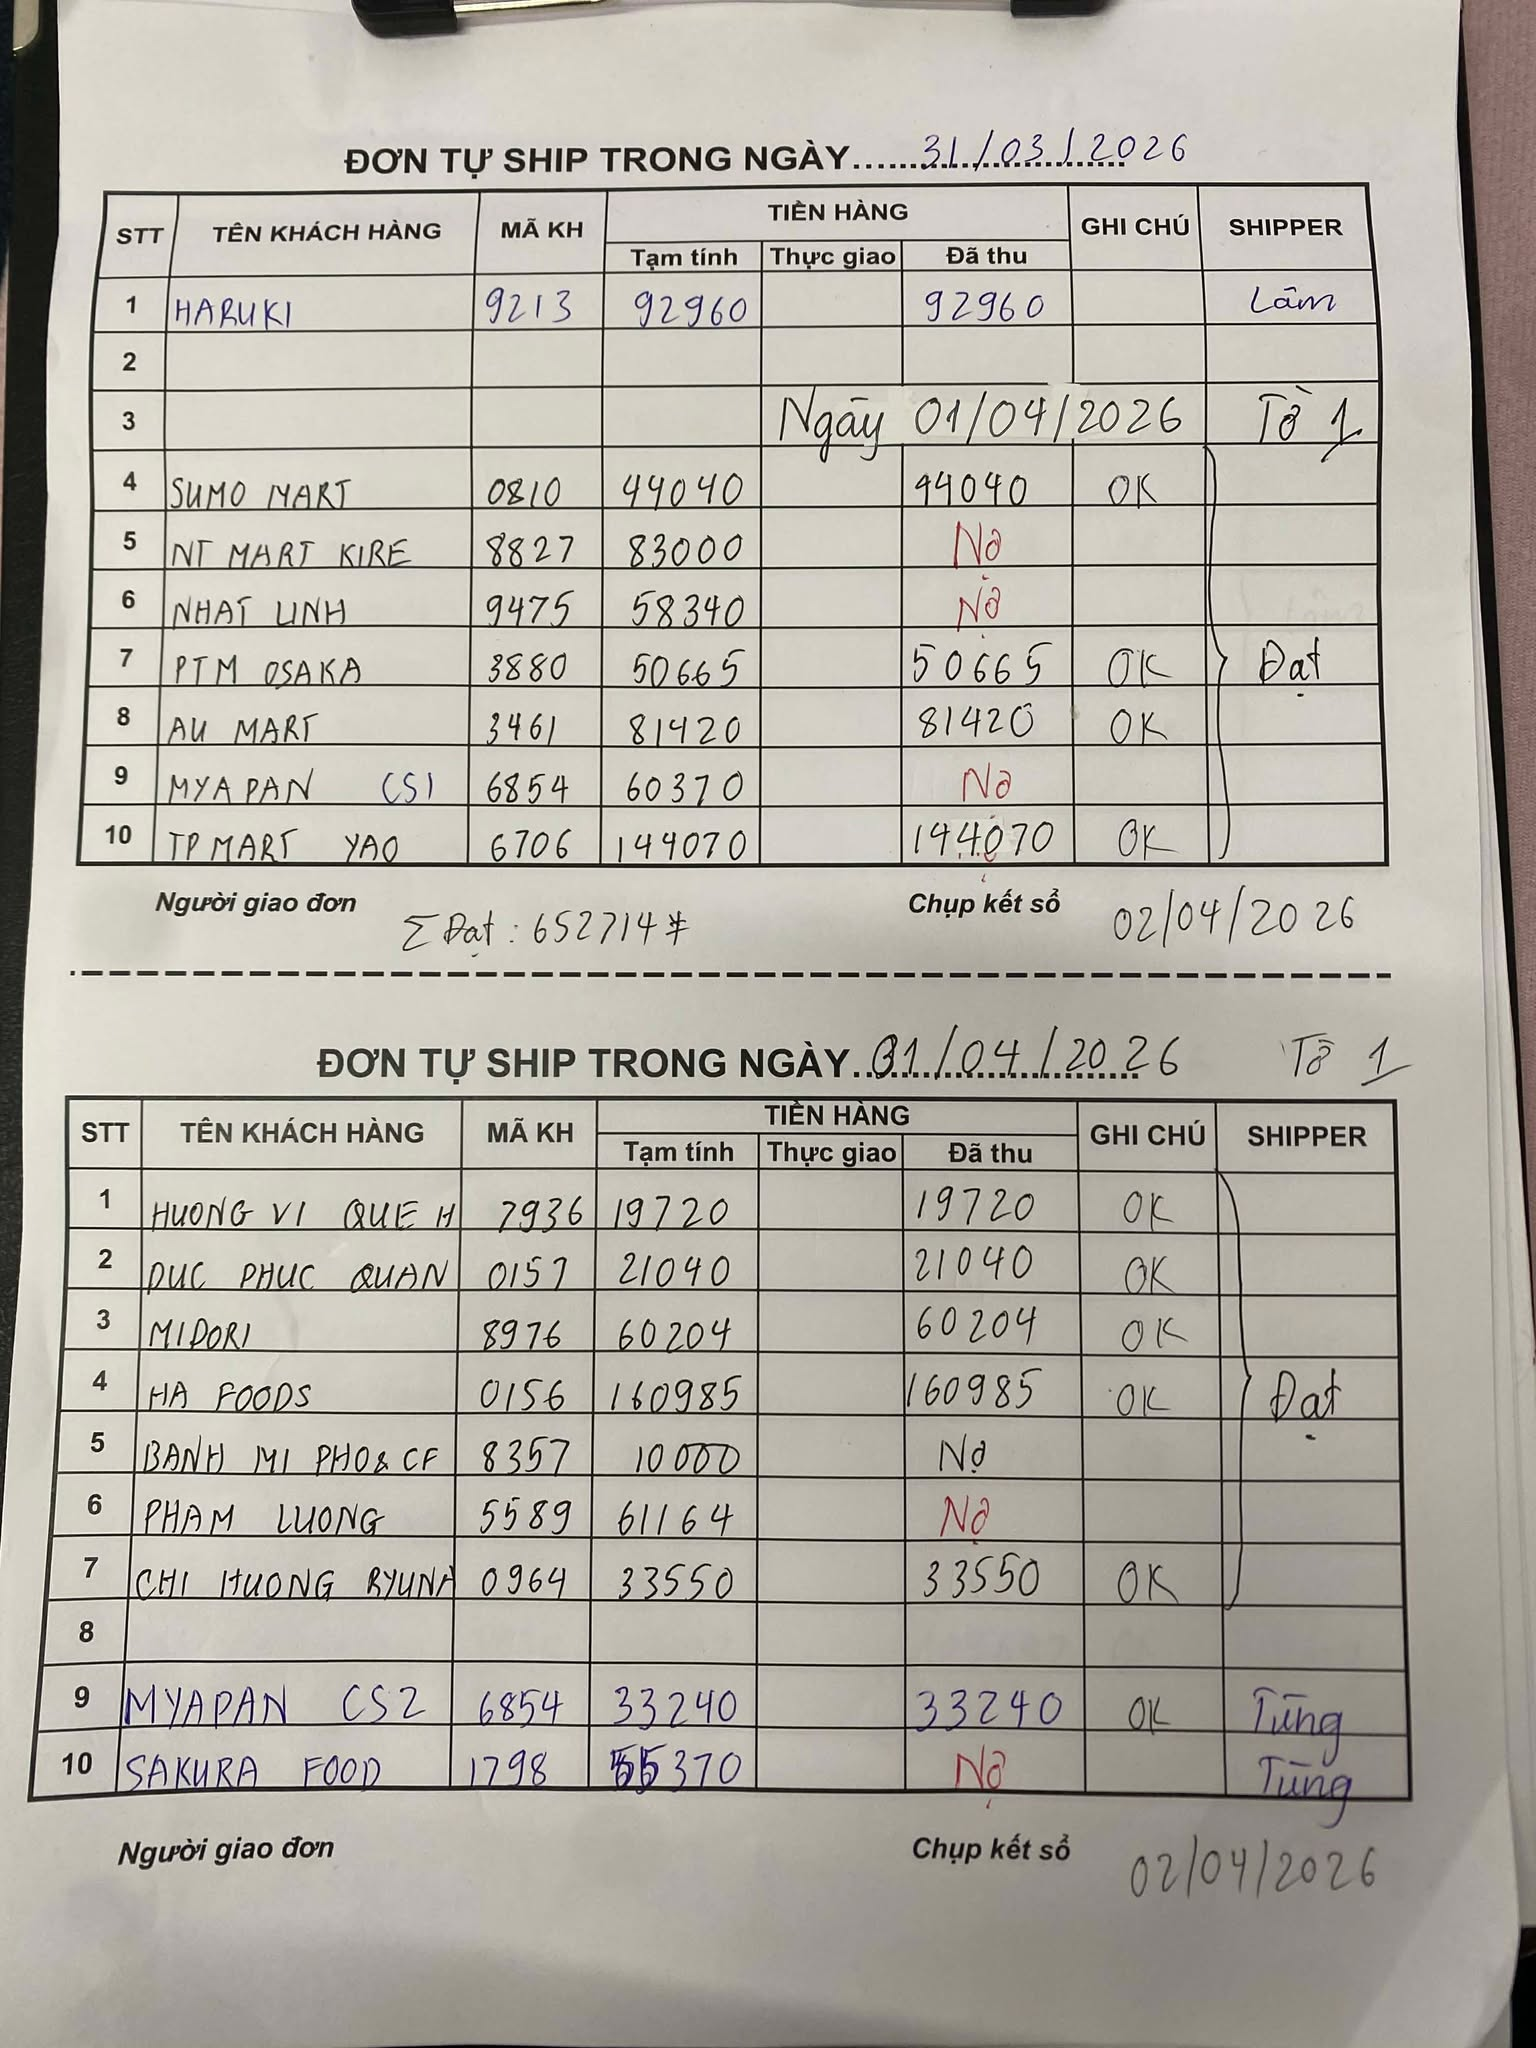 ĐƠN TỰ SHIP TRONG NGÀY 31/03/2026
STT TÊN KHÁCH HÀNG MÃ KH TIỀN HÀNG GHI CHÚ SHIPPER
Tạm tính Thực giao Đã thu
1 HARUKI 9213 92960 92960 Lâm
2
3 Ngày 01/04/2026 Tờ 1
4 SUMO MART 0810 44040 44040 OK
5 NT MART KIRE 8827 83000 Nợ
6 NHAT LINH 9475 58340 Nợ
7 PTM OSAKA 3880 50665 50665 OK Đạt
8 AU MART 3461 81420 81420 OK
9 MYAPAN CS1 6854 60370 Nợ
10 TP MART YAO 6706 144070 144070 OK
Người giao đơn Chụp kết sổ 02/04/2026
Σ Đạt: 652714¥
ĐƠN TỰ SHIP TRONG NGÀY 01/04/2026 Tờ 1
STT TÊN KHÁCH HÀNG MÃ KH TIỀN HÀNG GHI CHÚ SHIPPER
Tạm tính Thực giao Đã thu
1 HUONG VI QUE H 7936 19720 19720 OK
2 DUC PHUC QUAN 0157 21040 21040 OK
3 MIDORI 8976 60204 60204 OK
4 HA FOODS 0156 160985 160985 OK Đạt
5 BANH MI PHO & CF 8357 10000 Nợ
6 PHAM LUONG 5589 61164 Nợ
7 CHI HUONG RYUNA 0964 33550 33550 OK
8
9 MYAPAN CS2 6854 33240 33240 OK Tùng
10 SAKURA FOOD 1798 55370 Nợ Tùng
Người giao đơn Chụp kết sổ 02/04/2026